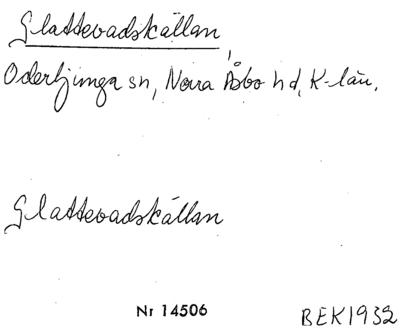 Glattevadskällan,
Oderljunga sn, Norra Åsbo hd, K-län.
Glattevadskällan
Nr 14506
BEK1932